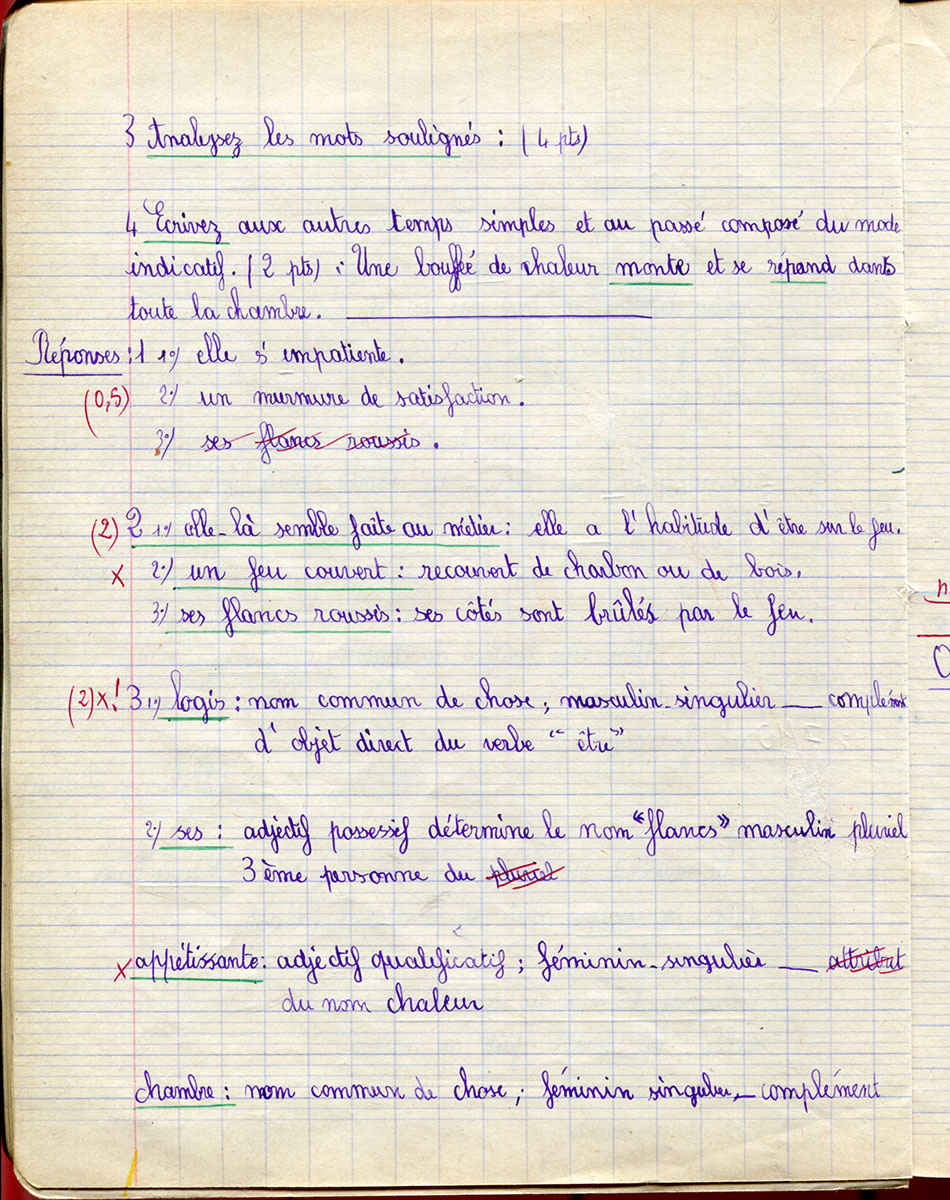 3 Analysez les mots soulignés : (4 pts)
4 Ecrivez aux autres temps simples et au passé composé du mode
indicatif. (2 pts) : Une bouffée de chaleur monte et se répand dans
toute la chambre.
Réponses : 1 1º) elle s'impatiente.
(0,5) 2º) un murmure de satisfaction.
3º) ses flancs roussis.
(2) 2 1º) elle-là semble faite au métier : elle a l'habitude d'être sur le feu.
x 2º) un feu couvert : recouvert de charbon ou de bois.
3º) ses flancs roussis : ses côtés sont brûlés par le feu.
(2) x! 3 1º) logis : nom commun de chose ; masculin-singulier — complément
d'objet direct du verbe "être"
2º) ses : adjéctif possessif détermine le nom "flancs" masculin pluriel
3ème personne du pluriel
x appétissante : adjéctif qualificatif ; féminin-singulier — attribut
du nom chaleur
chambre : nom commun de chose ; féminin singulier — complément